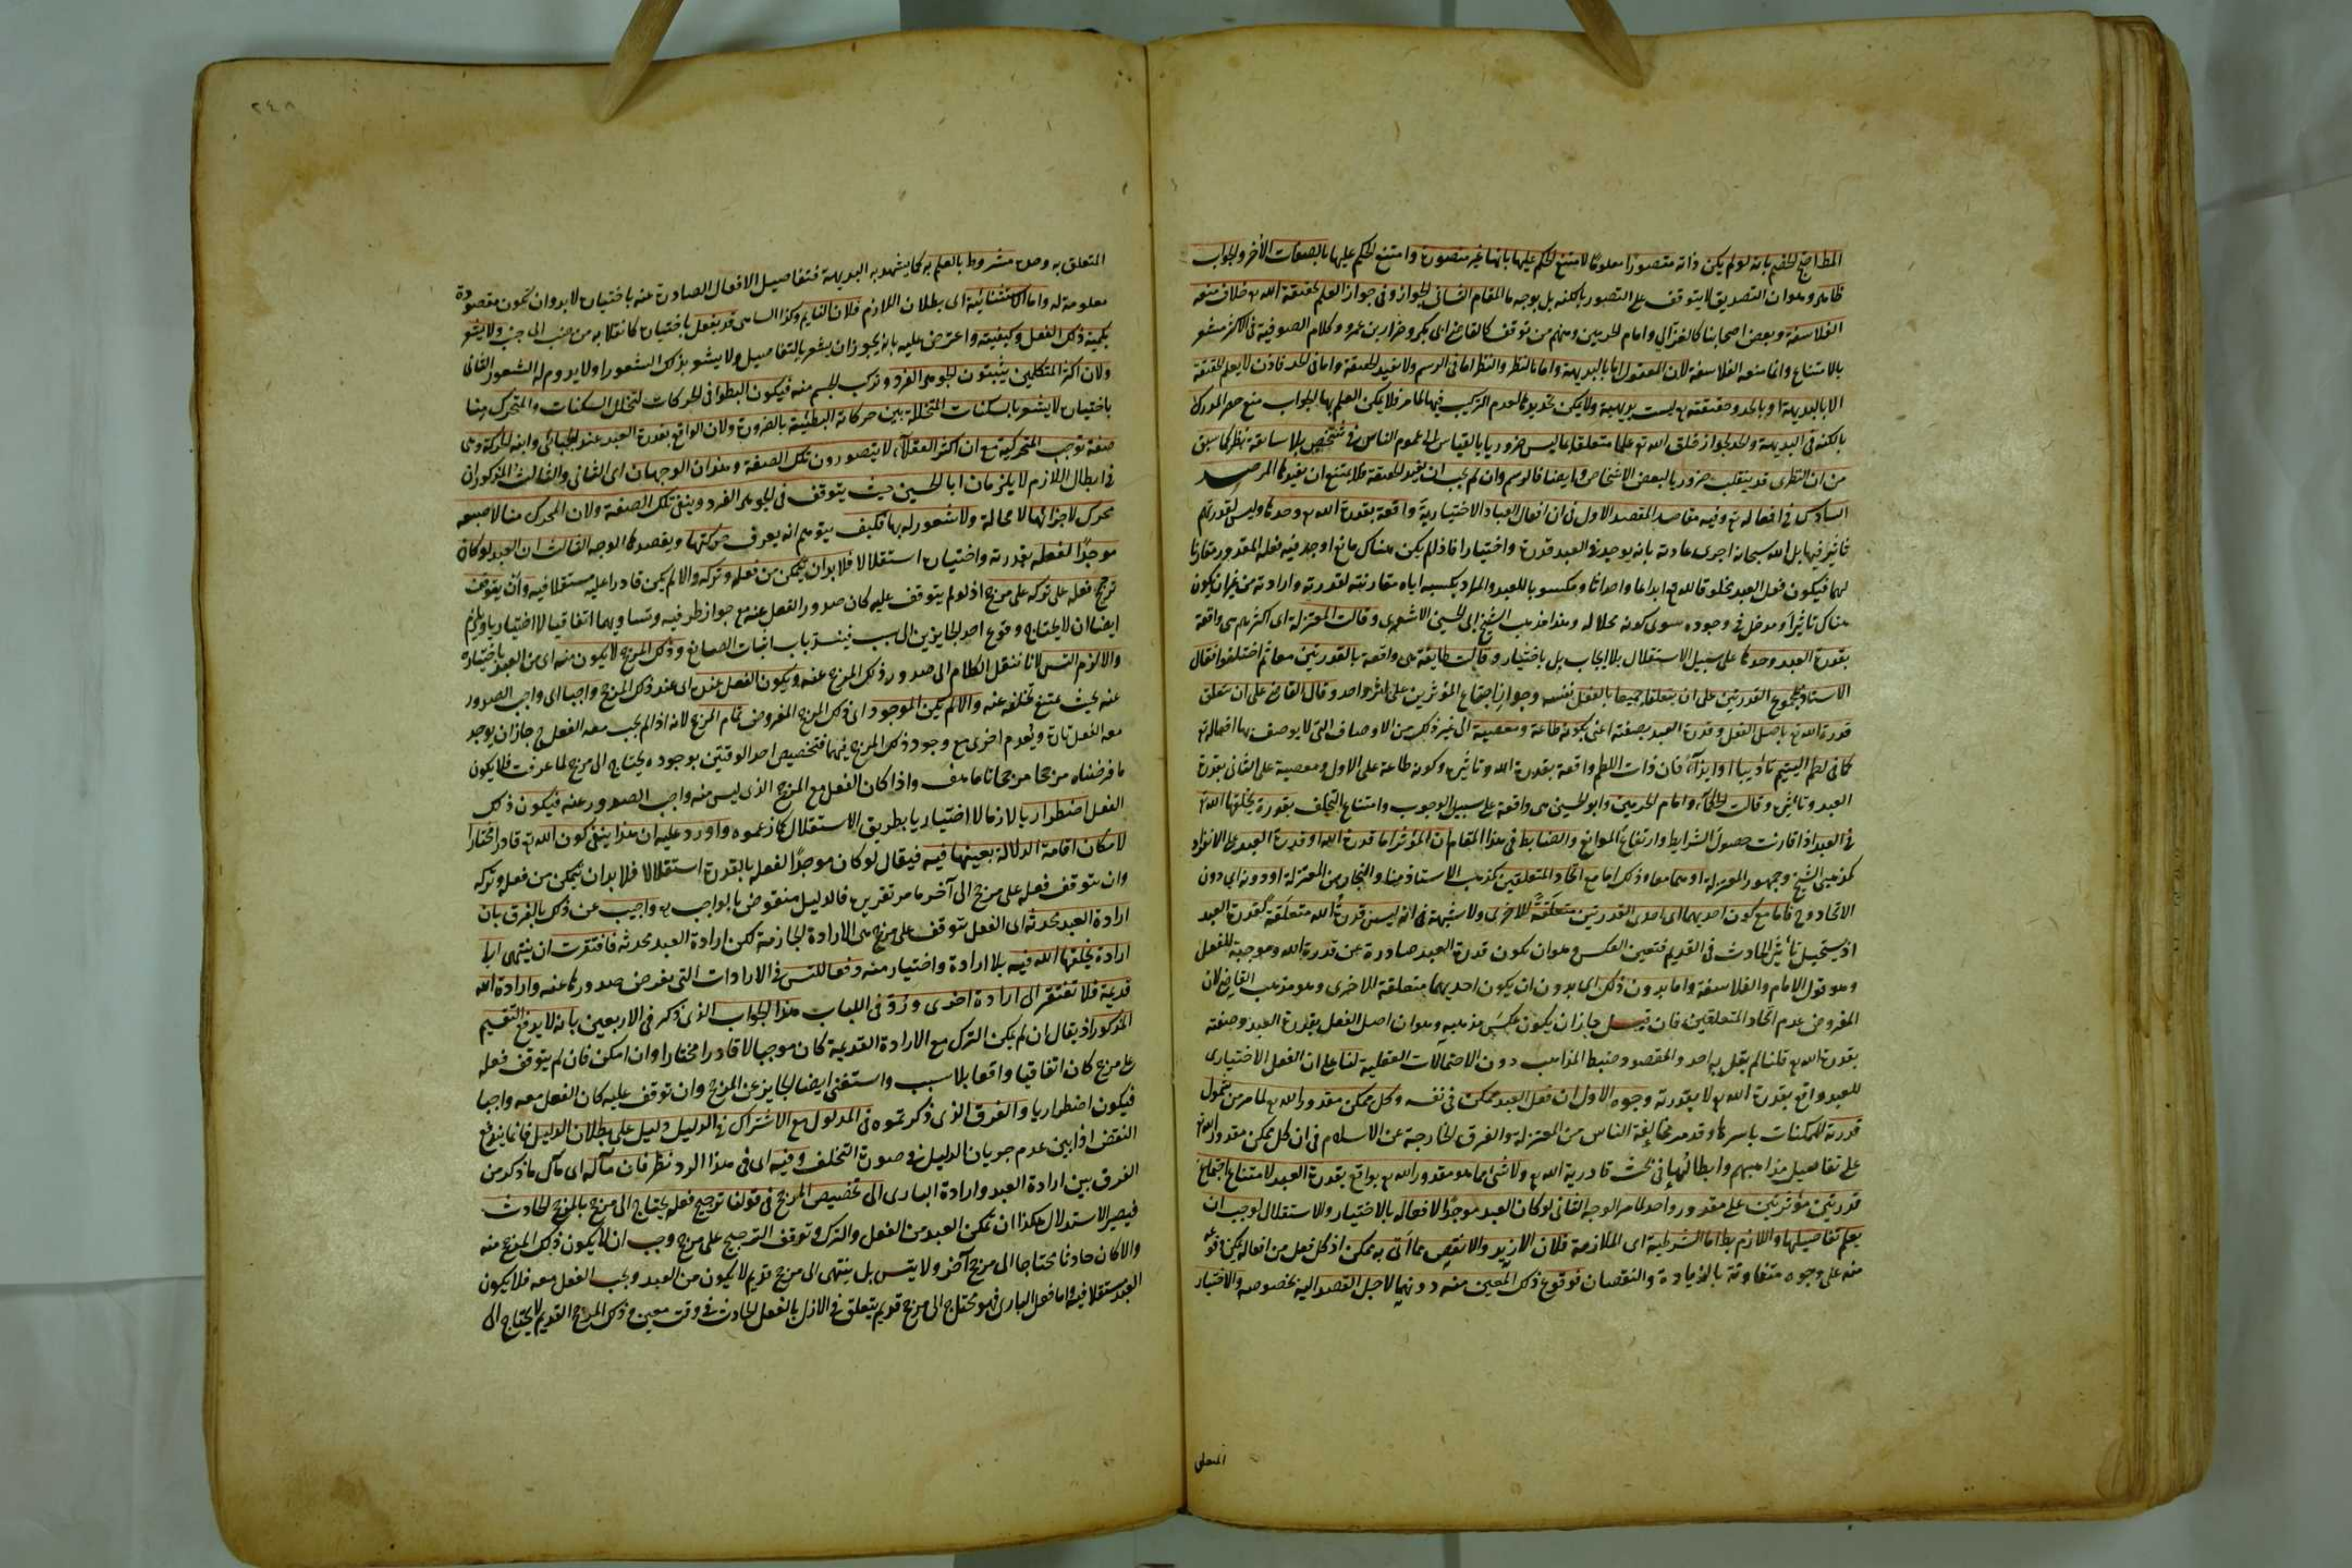 المط احتج الخصم بانه لو لم يكن ذاته متصورا معلوما لامتنع الحكم عليها بانها غير متصورة وامتنع الحكم عليها بالصفات الأخر والجواب
ظاهر وهو ان التصديق لا يتوقف على التصور بالكنه بل بوجه ما المقام الثاني الجواز وفي جواز العلم بحقيقة الله تع خلاف منعه
الفلاسفة وبعض اصحابنا كالغزالي وامام الحرمين ومنهم من توقف كالقاضى ابى بكر وضرار بن عمرو وكلام الصوفية في الاكثر مشعر
بالامتناع وانما منعه الفلاسفة لان المعقول اما بالبديهة واما بالنظر والنظر اما في الرسم ولا يفيد الحقيقة واما في الحد فاذن لا يعلم الحقيقة
الا بالبديهة او بالحد وحقيقته تع ليست بديهية ولا يمكن تحديدها لعدم التركيب فيها لما مر فلا يمكن العلم بها الجواب منع حصر المدرك
بالكنه في البديهة والحد لجواز خلق الله تع علما متعلقا بما ليس ضروريا بالقياس الى عموم الناس في شخص بلا سابقة نظر كما سبق
من ان النظرى قد ينقلب ضروريا لبعض الاشخاص وايضا فالرسم وان لم يجب ان يفيد الحقيقة فلا يمتنع ان يفيدها المرصد
السادس في افعاله تع وفيه مقاصد المقصد الاول في ان افعال العباد الاختيارية واقعة بقدرة الله تع وحدها وليس لقدرتهم
تاثير فيها بل الله سبحانه اجرى عادته بانه يوجد في العبد قدرة واختيارا فاذا لم يكن هناك مانع اوجد فيه فعله المقدور مقارنا
لهما فيكون فعل العبد مخلوقا لله تع ابداعا واحداثا ومكسوبا للعبد والمراد بكسبه اياه مقارنته لقدرته وارادته من غير ان يكون
هناك تاثير او مدخل في وجوده سوى كونه محلا له وهذا مذهب الشيخ ابى الحسن الاشعرى وقالت المعتزلة اى اكثرهم هى واقعة
بقدرة العبد وحدها على سبيل الاستقلال بلا ايجاب بل باختيار وقالت طايفة هى واقعة بالقدرتين معا ثم اختلفوا فقال
الاستاذ بمجموع القدرتين على ان يتعلقا جميعا بالفعل نفسه وجوز اجتماع المؤثرين على اثر واحد وقال القاضى على ان يتعلق
قدرة الله تع باصل الفعل وقدرة العبد بصفته اعنى بكونه طاعة ومعصية الى غير ذلك من الاوصاف التى لا يوصف بها افعاله تع
كما في لطم اليتيم تاديبا او ايذاء فان ذات اللطم واقعة بقدرة الله وتاثيره وكونه طاعة على الاول ومعصية على الثانى بقدرة
العبد وتاثيره وقالت الحكماء وامام الحرمين وابو الحسين هى واقعة على سبيل الوجوب وامتناع التخلف بقدرة يخلقها الله تع
في العبد اذا قارنت حصول الشرايط وارتفاع الموانع والضابط في هذا المقام ان المؤثر اما قدرة الله او قدرة العبد على الانفراد
كمذهبى الشيخ وجمهور المعتزلة او هما معا وذلك اما مع اتحاد المتعلقين كمذهب الاستاذ منا والنجار من المعتزلة او دونه اى دون
الاتحاد وح فاما مع كون احديهما اى احدى القدرتين متعلقة للاخرى ولا شبهة في انه ليس قدرة الله متعلقة لقدرة العبد
اذ يستحيل تأثير الحادث في القديم فتعين العكس وهو ان يكون قدرة العبد صادرة عن قدرة الله وموجبة للفعل
وهو قول الامام والفلاسفة واما بدون ذلك اى بدون ان يكون احديهما متعلقة للاخرى وهو مذهب القاضى لان
المفروض عدم اتحاد المتعلقين فان قيل جاز ان يكون عكس مذهبه وهو ان اصل الفعل بقدرة العبد وصفته
بقدرة الله تع قلنا لم يقل به احد والمقصود ضبط المذاهب دون الاحتمالات العقلية لنا على ان الفعل الاختيارى
للعبد واقع بقدرة الله تع لا بقدرته وجوه الاول ان فعل العبد ممكن في نفسه وكل ممكن مقدور الله تع لما مر من شمول
قدرته للممكنات باسرها وقد مر مخالفة الناس من المعتزلة والفرق الخارجة عن الاسلام في ان كل ممكن مقدور الله تع
على تفاصيل مذاهبهم وابطالها في بحث قادرية الله تع ولا شئ مما هو مقدور الله تع بواقع بقدرة العبد لامتناع اجتماع
قدرتين مؤثرتين على مقدور واحد لما مر الوجه الثانى لو كان العبد موجدا لافعاله بالاختيار والاستقلال لوجب ان
يعلم تفاصيلها واللازم بط اما الشرطية اى الملازمة فلان الازيد والانقص مما اتى به ممكن اذ كل فعل من افعاله يمكن وقوعه
منه على وجوه متفاوتة بالزيادة والنقصان فوقوع ذلك المعين منه دونهما لاجل القصد اليه بخصوصه والاختيار
المتعلق
المتعلق به وحده مشروط بالعلم به كما يشهد به البديهة فتفاصيل الافعال الصادرة عنه باختياره لا بد وان تكون مقصودة
معلومة له واما الاستثنائية اى بطلان اللازم فلان النايم وكذا الساهى قد يفعل باختياره كانقلابه من جنب الى جنب ولا يشعر
بكمية ذلك الفعل وكيفيته واعترض عليه بانه يجوز ان يشعر بالتفاصيل ولا يشعر بذلك الشعور او لا يدوم له الشعور الثانى
ولان اكثر المتكلمين يثبتون الجوهر الفرد وتركب الجسم منه فيكون البطؤ في الحركات لتخلل السكنات والمتحرك منا
باختياره لا يشعر بالسكنات المتخللة بين حركاته البطيئة بالضرورة ولان الواقع بقدرة العبد عند الجبائى وابنه الحركة وهى
صفة توجب المتحركية مع ان اكثر العقلاء لا يتصورون تلك الصفة وهذان الوجهان اى الثانى والثالث المذكوران
في ابطال اللازم لا يلزمان ابا الحسين حيث يتوقف في الجوهر الفرد وينفى تلك الصفة ولان المحرك منا لاصبعه
محرك لاجزائها لا محالة ولا شعور له بها فكيف يتوهم انه يعرف حركتها ويقصدها الوجه الثالث ان العبد لو كان
موجدا لفعله بقدرته واختياره استقلالا فلا بد ان يتمكن من فعله وتركه والا لم يكن قادرا عليه مستقلا فيه وأن يتوقف
ترجيح فعله على تركه على مرجح اذ لو لم يتوقف عليه كان صدور الفعل عنه مع جواز طرفيه وتساويهما اتفاقيا لا اختياريا ويلزم
ايضا ان لا يحتاج وقوع احد الجايزين الى سبب فينسد باب اثبات الصانع وذلك المرجح لا يكون منه اى من العبد باختياره
والا لزم التس لانا ننقل الكلام الى صدور ذلك المرجح عنه ويكون الفعل عنده اى عند ذلك المرجح واجبا اى واجب الصدور
عنه بحيث يمتنع تخلفه عنه والا لم يكن الموجود اى ذلك المرجح المفروض تمام المرجح لانه اذا لم يجب معه الفعل ح جاز ان يوجد
معه الفعل تارة ويعدم اخرى مع وجود ذلك المرجح فيهما فتخصيص احد الوقتين بوجوده يحتاج الى مرجح لما عرفت فلا يكون
ما فرضناه مرجحا مرجحا تاما هف واذا كان الفعل مع المرجح الذى ليس منه واجب الصدور عنه فيكون ذلك
الفعل اضطراريا لازما لا اختياريا بطريق الاستقلال كما زعموه واورد عليه ان هذا ينفى كون الله تع قادرا مختارا
لامكان اقامة الدلالة بعينها فيه فيقال لو كان موجدا لفعله بالقدرة استقلالا فلا بد ان يتمكن من فعله وتركه
وان يتوقف فعله على مرجح الى آخر ما مر تقريره فالدليل منقوض بالواجب تع واجيب عن ذلك بالفرق بان
ارادة العبد محدثة اى الفعل يتوقف على مرجح هى الارادة الجازمة لكن ارادة العبد محدثة فافتقرت ان ينتهى الى
ارادة يخلقها الله فيه بلا ارادة واختيار منه دفعا للتس في الارادات التى يفرض صدورها عنه وارادة الله
قديمة فلا تفتقر الى ارادة اخرى ورد في اللباب هذا الجواب الذى ذكر في الاربعين بانه لا يدفع التقسيم
المذكور اذ يقال ان لم يكن الترك مع الارادة القديمة كان موجبا لا قادرا مختارا وان امكن فان لم يتوقف فعله
على مرجح كان اتفاقيا واقعا بلا سبب واستغنى ايضا الجايز عن المرجح وان توقف عليه كان الفعل معه واجبا
فيكون اضطراريا والفرق الذى ذكرتموه في المدلول مع الاشتراك في الدليل دليل على بطلان الدليل فانما يندفع
النقض اذا بين عدم جريان الدليل في صورة التخلف وفيه اى في هذا الرد نظر فان مآله اى مآل ما ذكر من
الفرق بين ارادة العبد وارادة البارى الى تخصيص المرجح في قولنا ترجيح فعله يحتاج الى مرجح بالمرجح الحادث
فيصير الاستدلال هكذا ان تمكن العبد من الفعل والترك وتوقف الترجيح على مرجح وجب ان لا يكون ذلك المرجح منه
والا كان حادثا محتاجا الى مرجح آخر ولا يتس بل ينتهى الى مرجح قديم لا يكون من العبد ويجب الفعل معه فلا يكون
العبد مستقلا فيه واما فعل البارى فهو محتاج الى مرجح قديم يتعلق في الازل بالفعل الحادث في وقت معين وذلك المرجح القديم لا يحتاج الى
٢٤٨